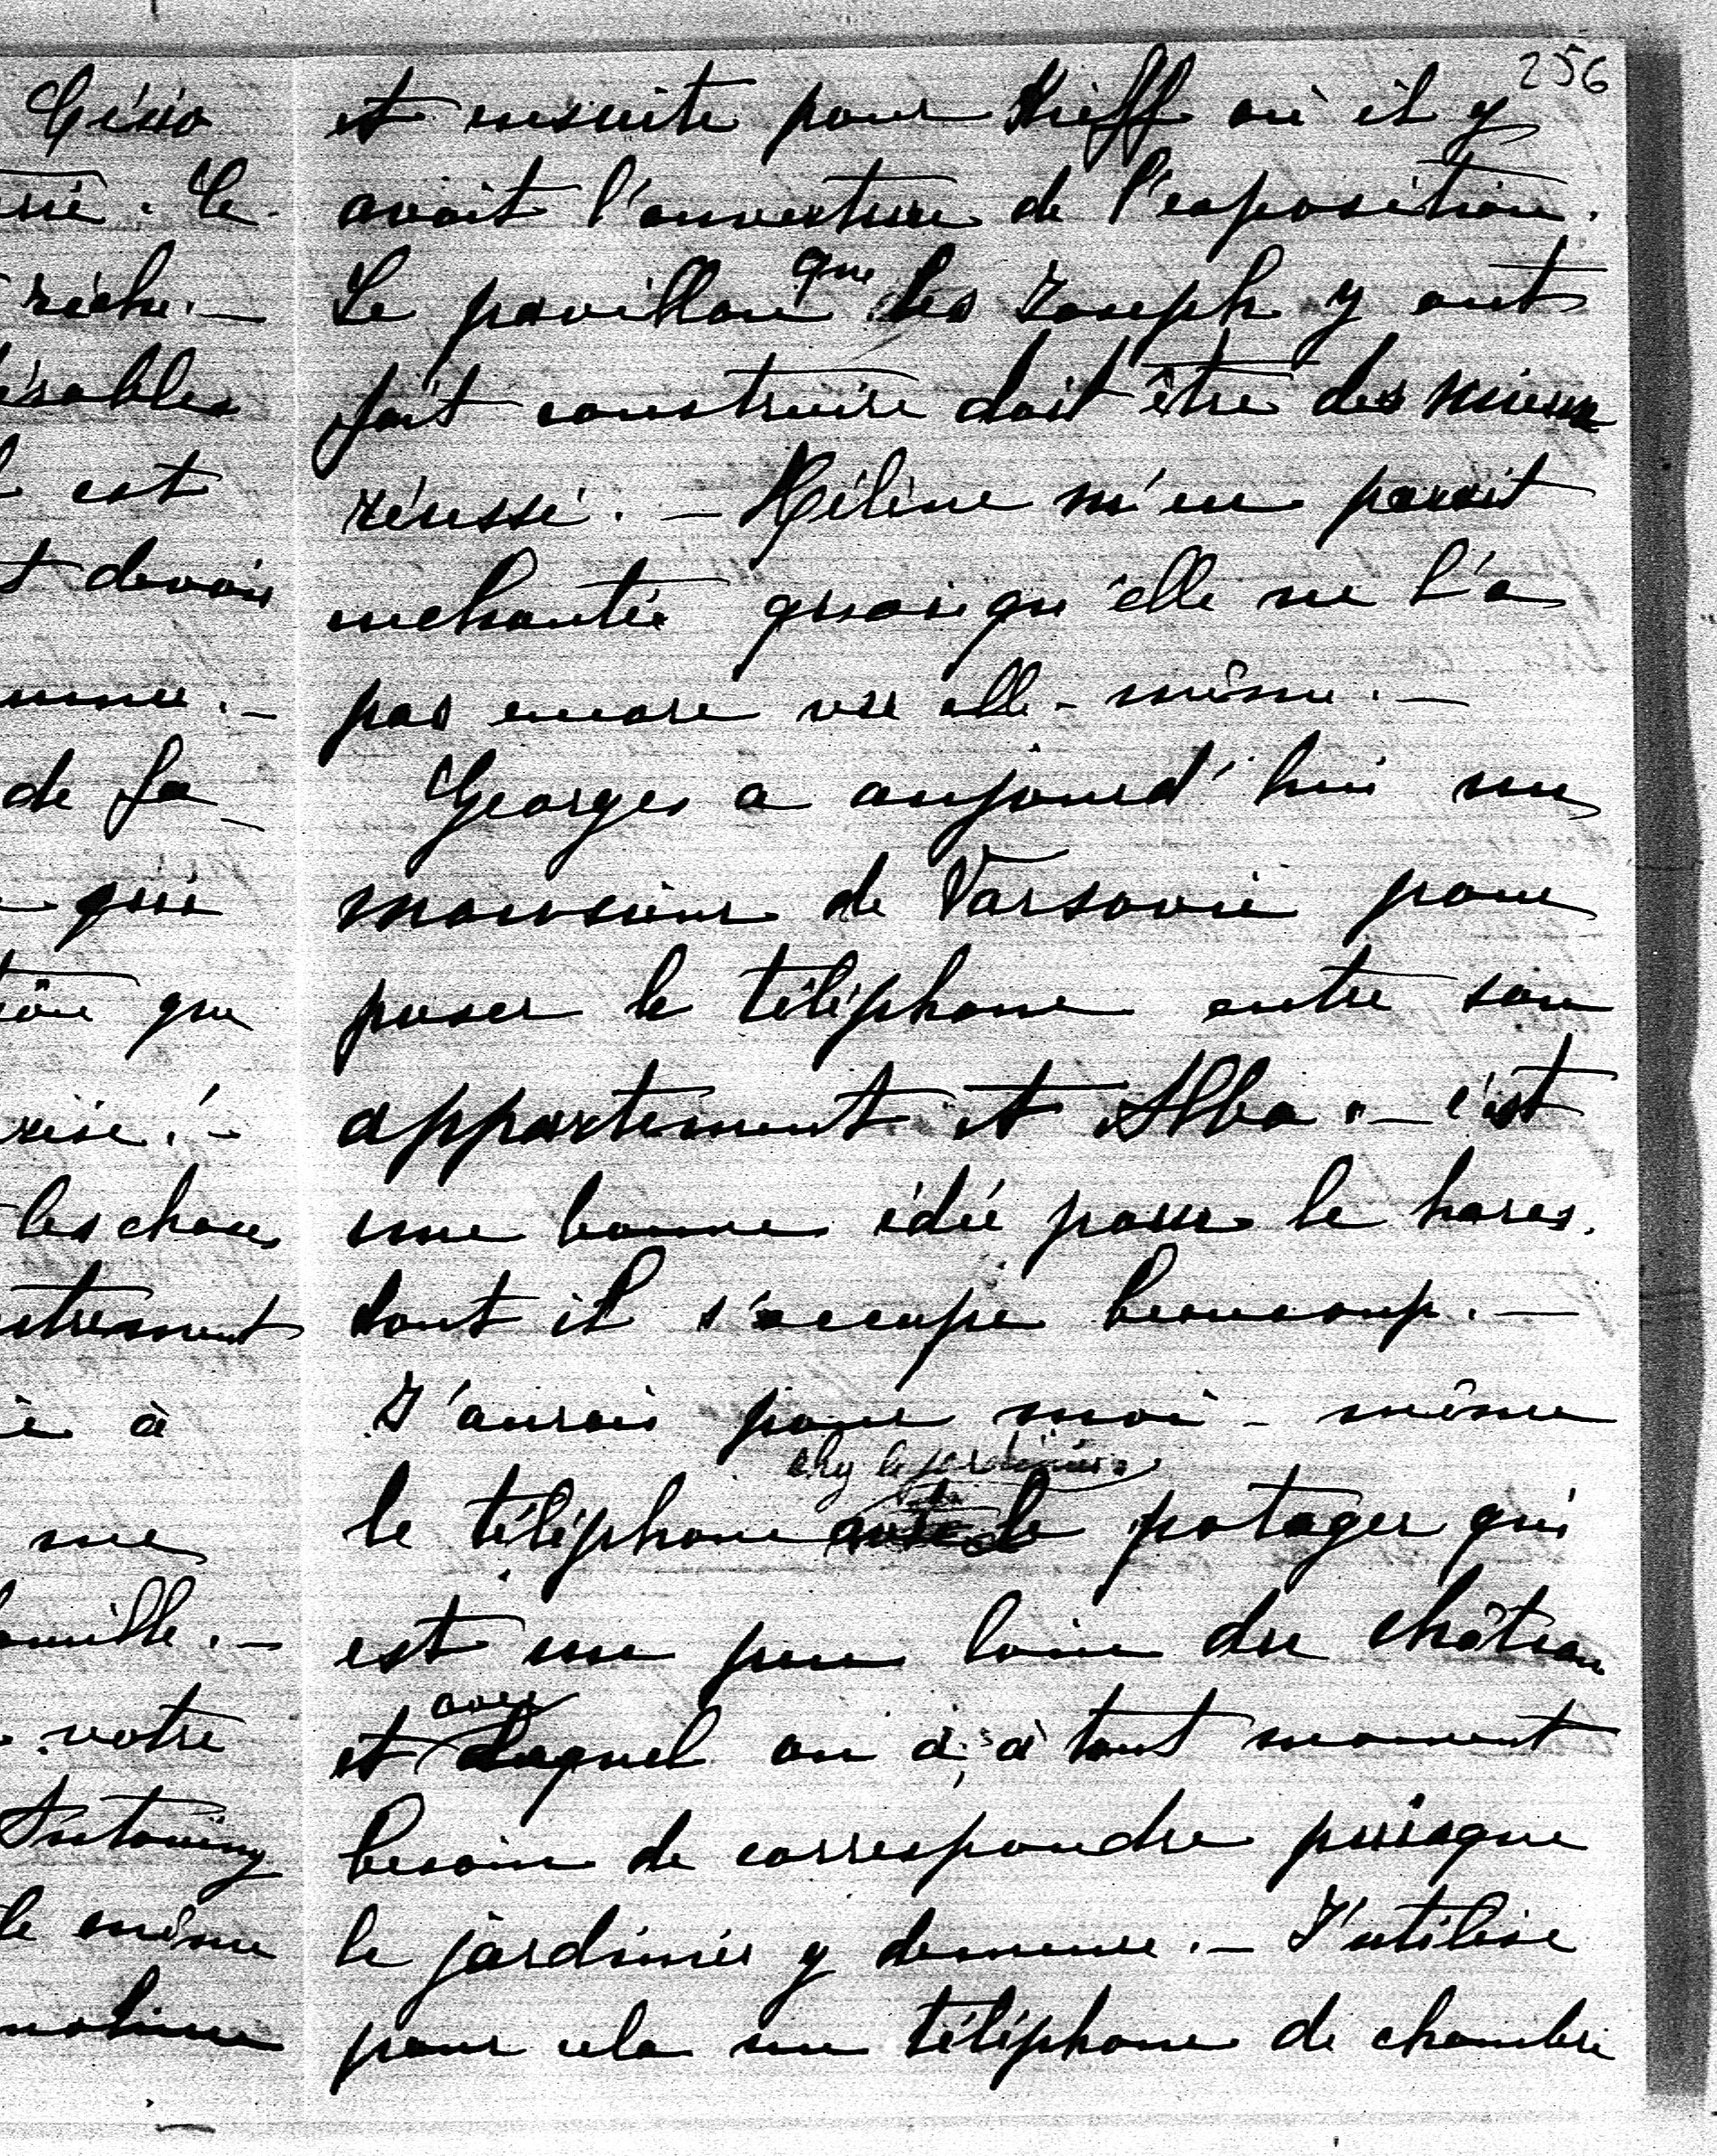 256
et ensuite pour Kieff où il y
avait l'ouverture de l'exposition.
Le pavillon que les Joseph y ont
fait construire doit être des mieux
réussi. — Hélène m'en parait
enchantée quoiqu'elle ne l'a
pas encore vu elle-même. —
Georges a aujourd'hui un
monsieur de Varsovie pour
poser le téléphone entre son
appartement et Alba. — c'est
une bonne idée pour le haras.
dont il s'occupe beaucoup. —
J'aurai pour moi-même
chez le jardinier.
le téléphone le potager qui
est un peu loin du château
avec
et lequel on a à tout moment
besoin de correspondre puisque
le jardinier y demeure. — J'utilise
pour cela un téléphone de chambre
riche. —
est
devoir
de fa-
qui
que
les choses
à
me
votre
Antoniny
le même